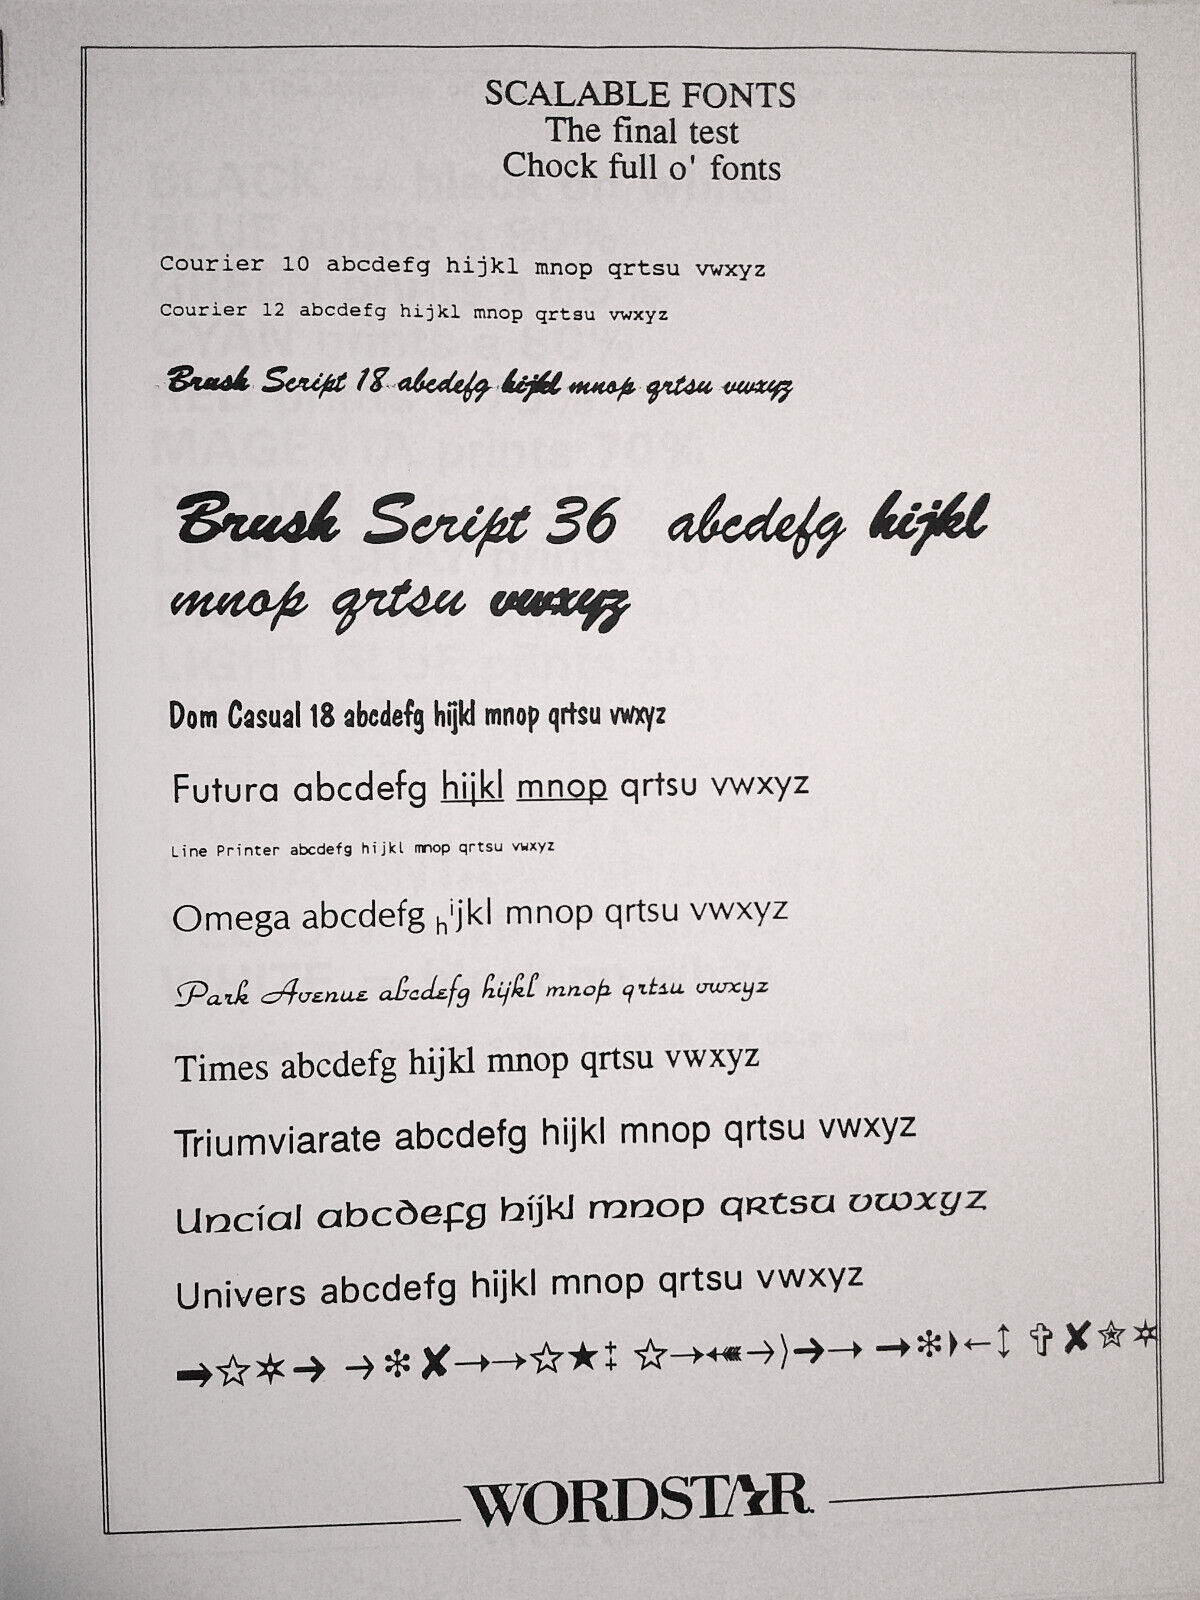 SCALABLE FONTS
The final test
Chock full o' fonts
Courier 10 abcdefg hijkl mnop qrtsu vwxyz
Courier 12 abcdefg hijkl mnop qrtsu vwxyz
Brush Script 18 abcdefg hijkl mnop qrtsu vwxyz
Brush Script 36 abcdefg hijkl
mnop qrtsu vwxyz
Dom Casual 18 abcdefg hijkl mnop qrtsu vwxyz
Futura abcdefg hijkl mnop qrtsu vwxyz
Line Printer abcdefg hijkl mnop qrtsu vwxyz
Omega abcdefg hijkl mnop qrtsu vwxyz
Park Avenue abcdefg hijkl mnop qrtsu vwxyz
Times abcdefg hijkl mnop qrtsu vwxyz
Triumviarate abcdefg hijkl mnop qrtsu vwxyz
Uncial abcdefg hijkl mnop qrtsu vwxyz
Univers abcdefg hijkl mnop qrtsu vwxyz
WORDSTAR